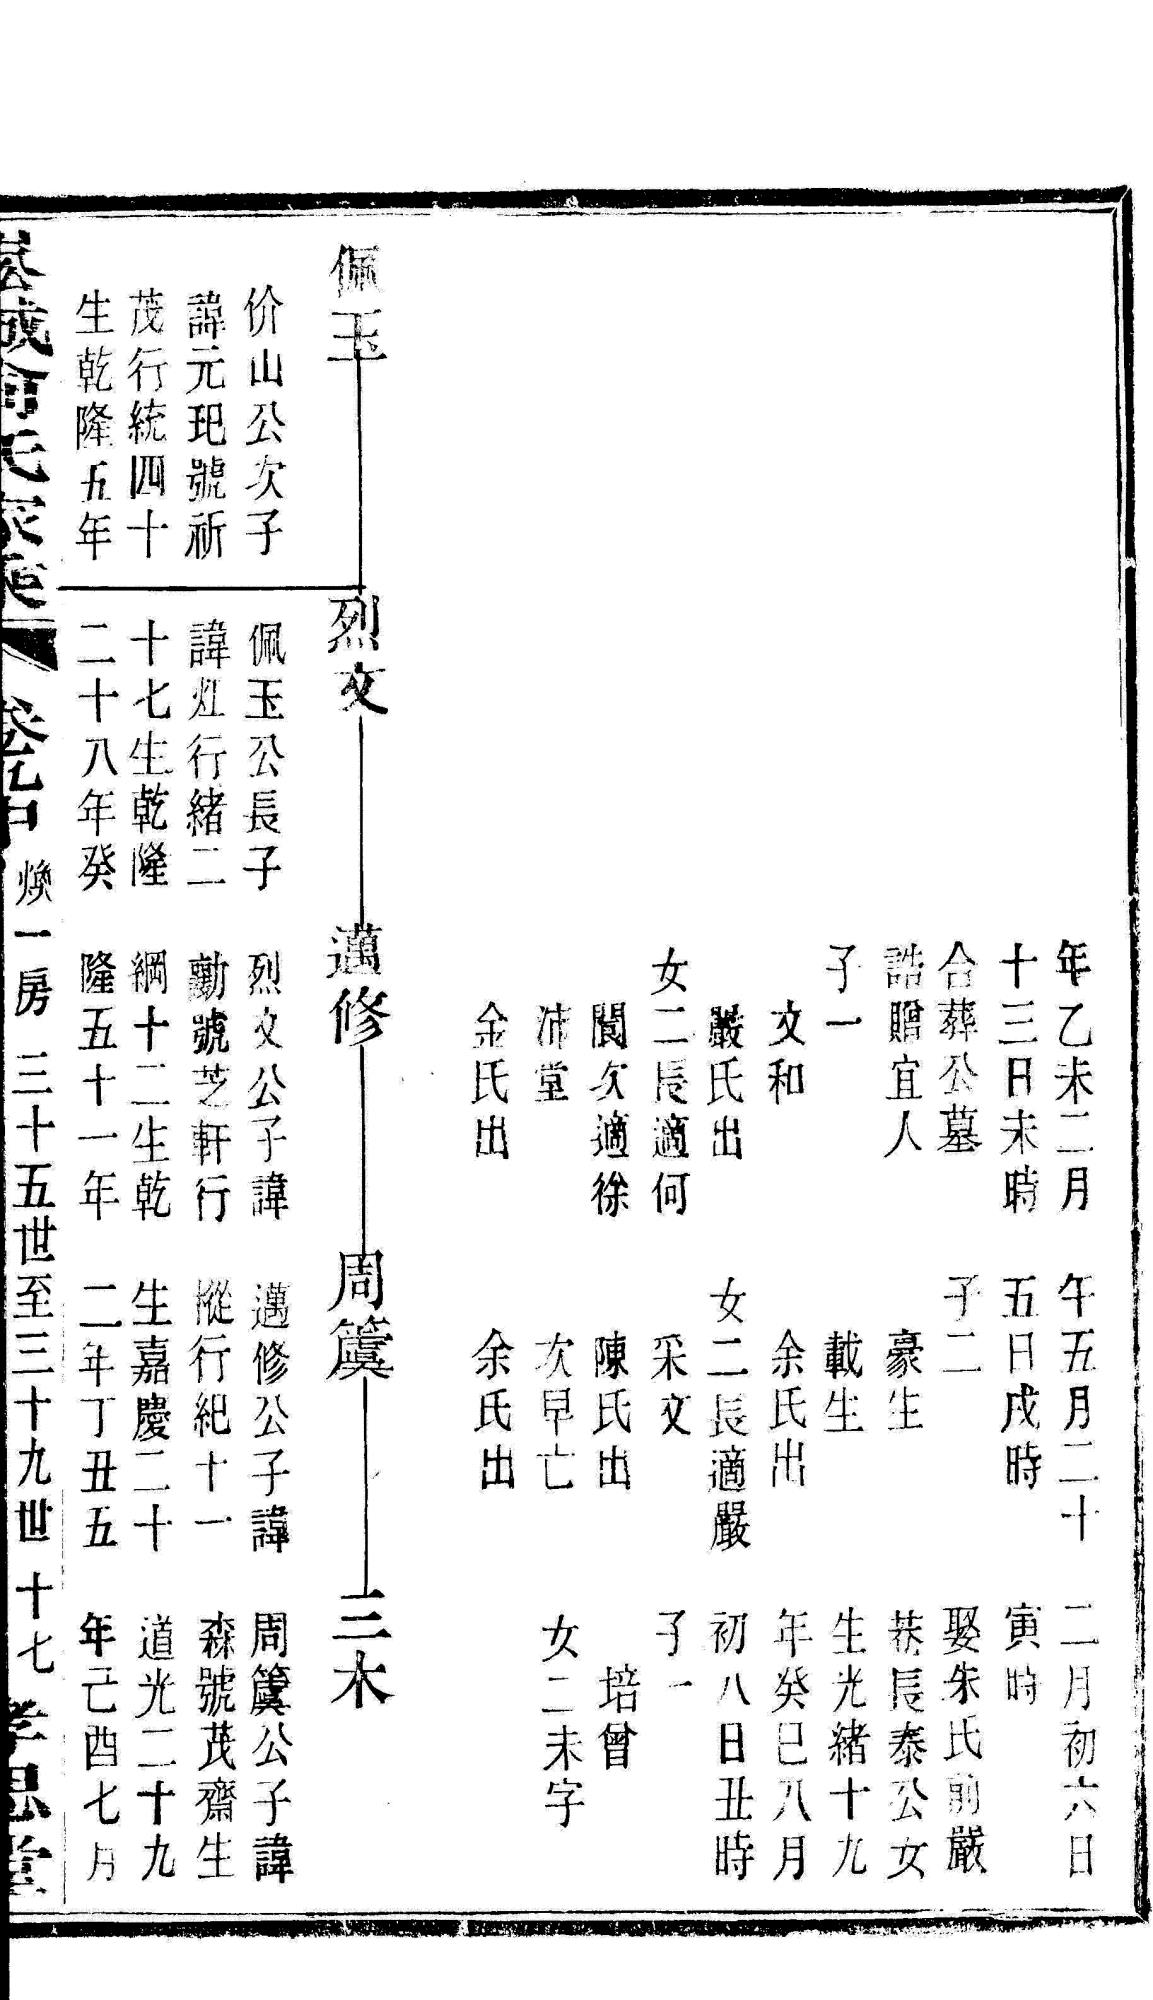 年乙未二月
十三日未時
合葬公墓
誥贈宜人
子一
文和
嚴氏出
女二長適何
閬次適徐
沛堂
金氏出
午五月二十
五日戌時
子二
豪生
載生
余氏出
女二長適嚴
采文
陳氏出
次早亡
余氏出
二月初六日
寅時
娶朱氏前嚴
巷長泰公女
生光緒十九
年癸巳八月
初八日丑時
子一
培曾
女二未字
佩玉
价山公次子
諱元玘號祈
茂行統四十
生乾隆五年
烈文
佩玉公長子
諱灴行緒二
十七生乾隆
二十八年癸
邁修
烈文公子諱
勷號芝軒行
綱十二生乾
隆五十一年
周簴
邁修公子諱
樅行紀十一
生嘉慶二十
二年丁丑五
三木
周簴公子諱
森號茂齋生
道光二十九
年己酉七月
氏家乘 煥一房 三十五世至三十九世 十七 孝思堂